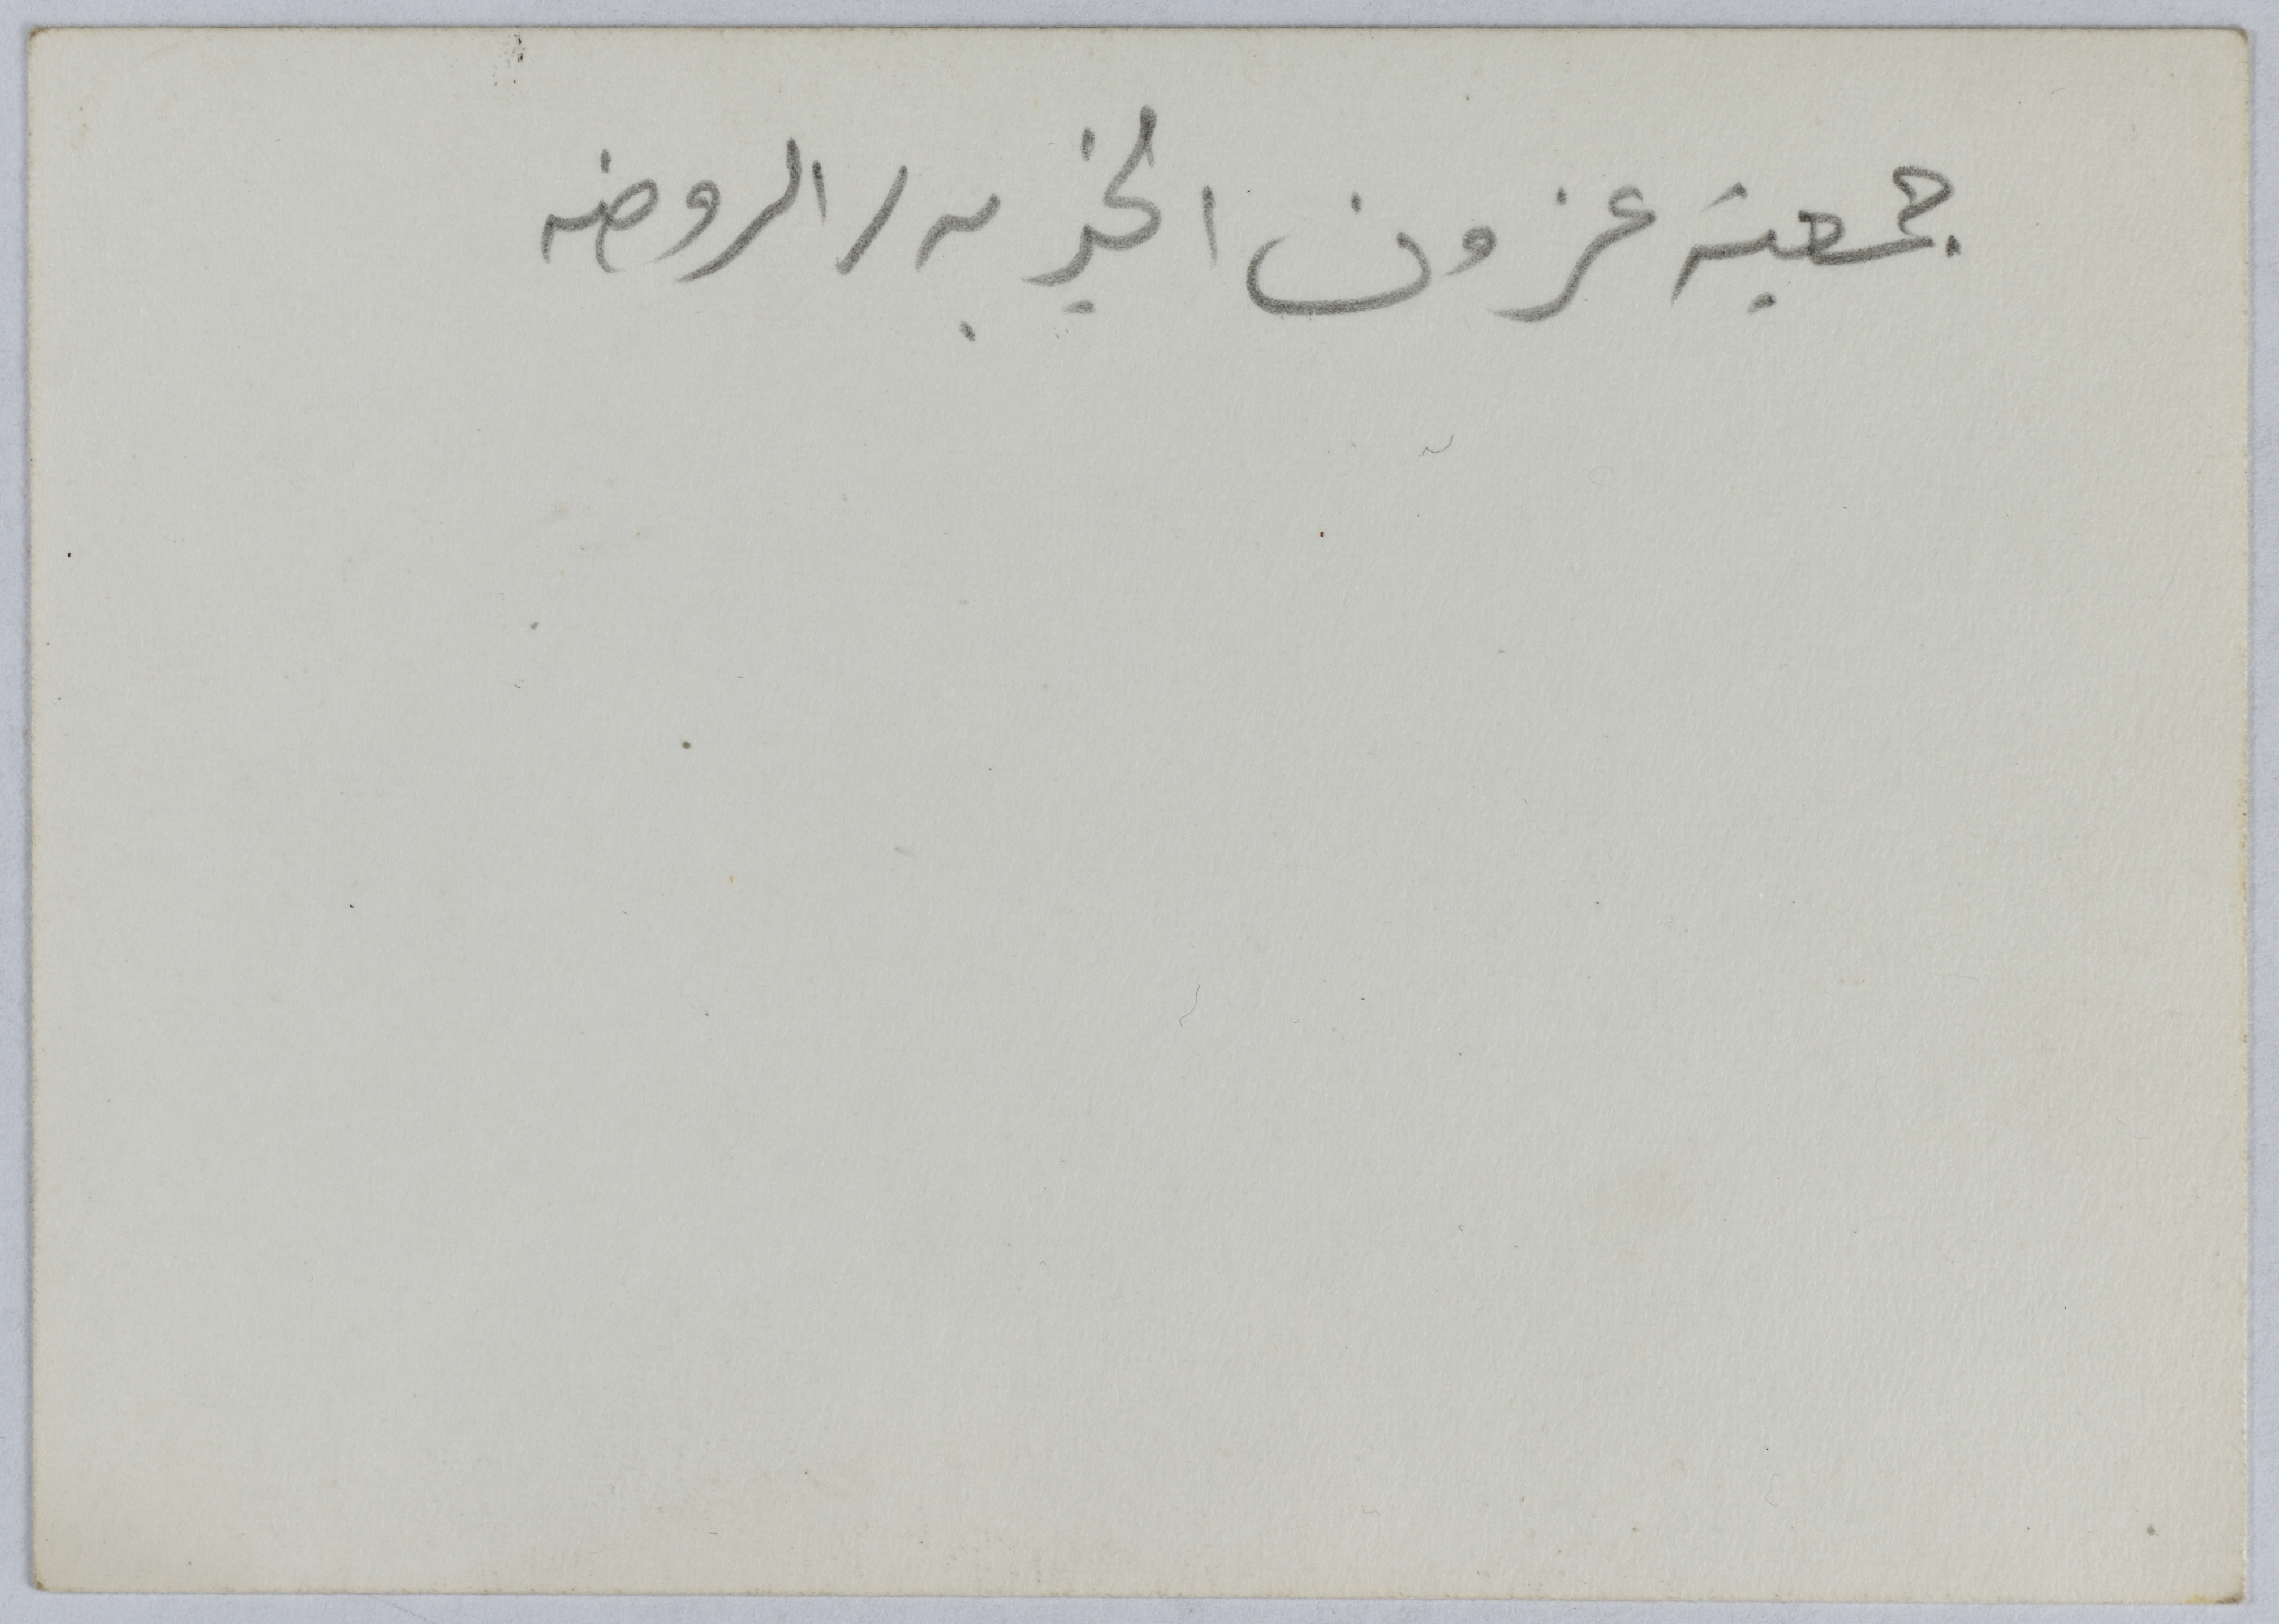 جمعية عزون الخيريه / الروضه